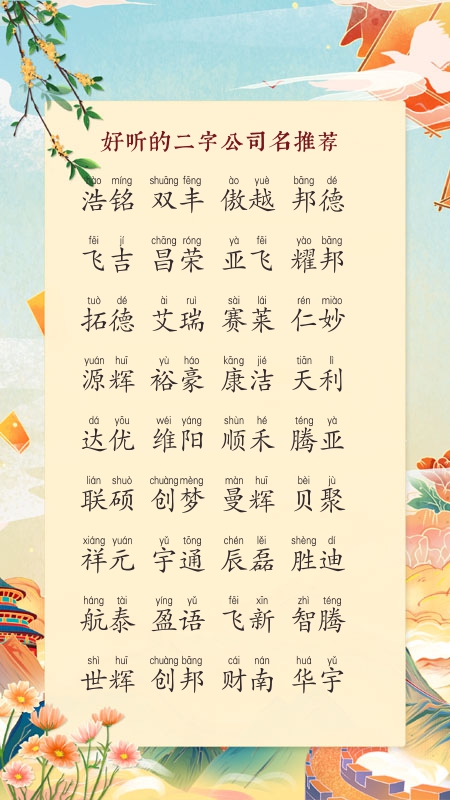 好听的二字公司名推荐
hào míng shuāng fēng ào yuè bāng dé
浩铭 双丰 傲越 邦德
fēi jí chāng róng yà fēi yào bāng
飞吉 昌荣 亚飞 耀邦
tuò dé ài ruì sài lái rén miào
拓德 艾瑞 赛莱 仁妙
yuán huī yù háo kāng jié tiān lì
源辉 裕豪 康洁 天利
dá yōu wéi yáng shùn hé téng yà
达优 维阳 顺禾 腾亚
lián shuò chuàng mèng màn huī bèi jù
联硕 创梦 曼辉 贝聚
xiáng yuán yǔ tōng chén lěi shèng dí
祥元 宇通 辰磊 胜迪
háng tài yíng yǔ fēi xīn zhì téng
航泰 盈语 飞新 智腾
shì huī chuàng bāng cái nán huá yǔ
世辉 创邦 财南 华宇